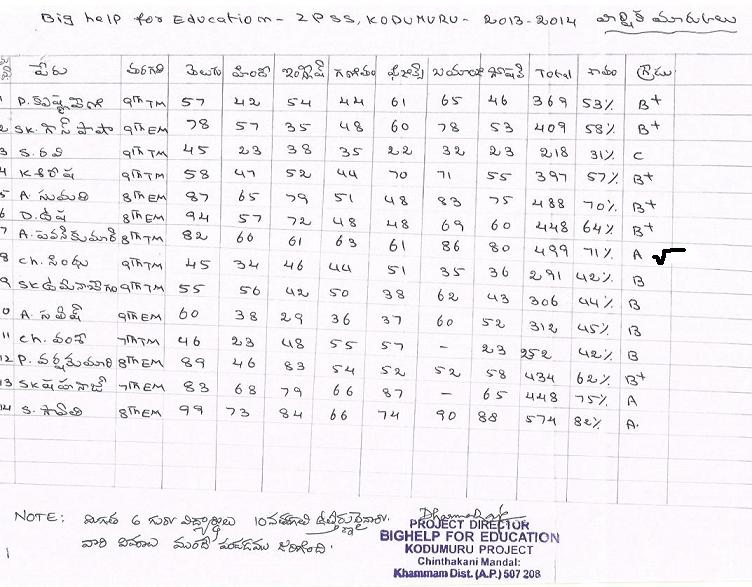 Big help for Education - ZPSS, KODUMURU - 2013-2014 వార్షిక మార్కులు
పేరు తరగతి తెలుగు హింది ఇంగ్లీష్ గణితం ఫిజిక్స్ బయాలజి సోషల్ Total శాతం గ్రేడు
1 P. కృష్ణవేణి 9th TM 57 42 54 44 61 65 46 369 53% B+
2 SK. గౌస్ పాషా 9th EM 78 57 35 48 60 78 53 409 58% B+
3 S. రవి 9th TM 45 23 38 35 22 32 23 218 31% C
4 K. శిరీష 9th TM 58 47 52 44 70 71 55 397 57% B+
5 A. సుమతి 8th EM 87 65 79 51 48 83 75 488 70% B+
6 D. ఉష 8th EM 94 57 72 48 48 69 60 448 64% B+
7 A. పవన్ కుమార్ 8th TM 82 60 61 63 61 86 80 499 71% A √
8 Ch. సింధు 9th TM 45 34 46 44 51 35 36 291 42% B
9 SK 9th TM 55 56 42 50 38 62 43 306 44% B
10 A. 9th EM 60 38 29 36 37 60 52 312 45% B
11 Ch. వంశి 7th TM 46 23 48 55 57 - 23 252 42% B
12 P. 8th EM 89 46 83 54 52 52 58 434 62% B+
13 SK షహనాజ్ 7th EM 83 68 79 66 87 - 65 448 75% A
14 S. 8th EM 99 73 84 66 74 90 88 574 82% A.
NOTE: మిగతా 6 గురు విద్యార్థులు 10వ తరగతి ఉత్తీర్ణులైనారు.
వారి వివరాలు ముందే పంపడము జరిగింది.
PROJECT DIRECTOR
BIGHELP FOR EDUCATION
KODUMURU PROJECT
Chinthakani Mandal:
Khammam Dist. (A.P.) 507 208